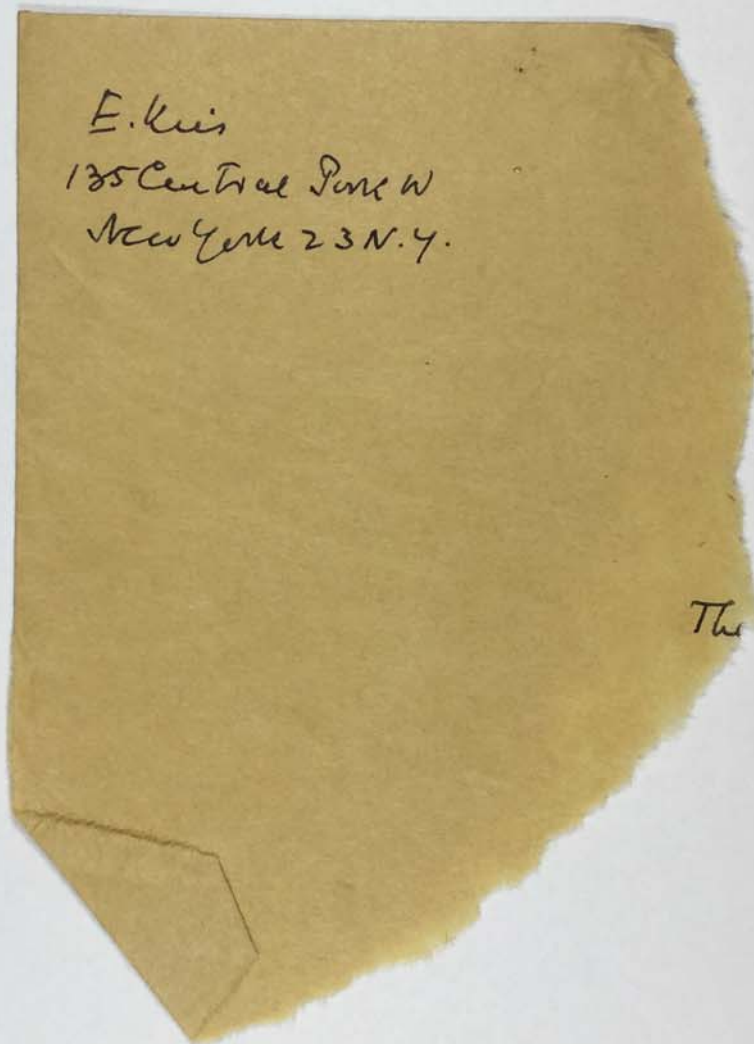 E. Kris
135 Central Park W
New York 23 N.Y.
The